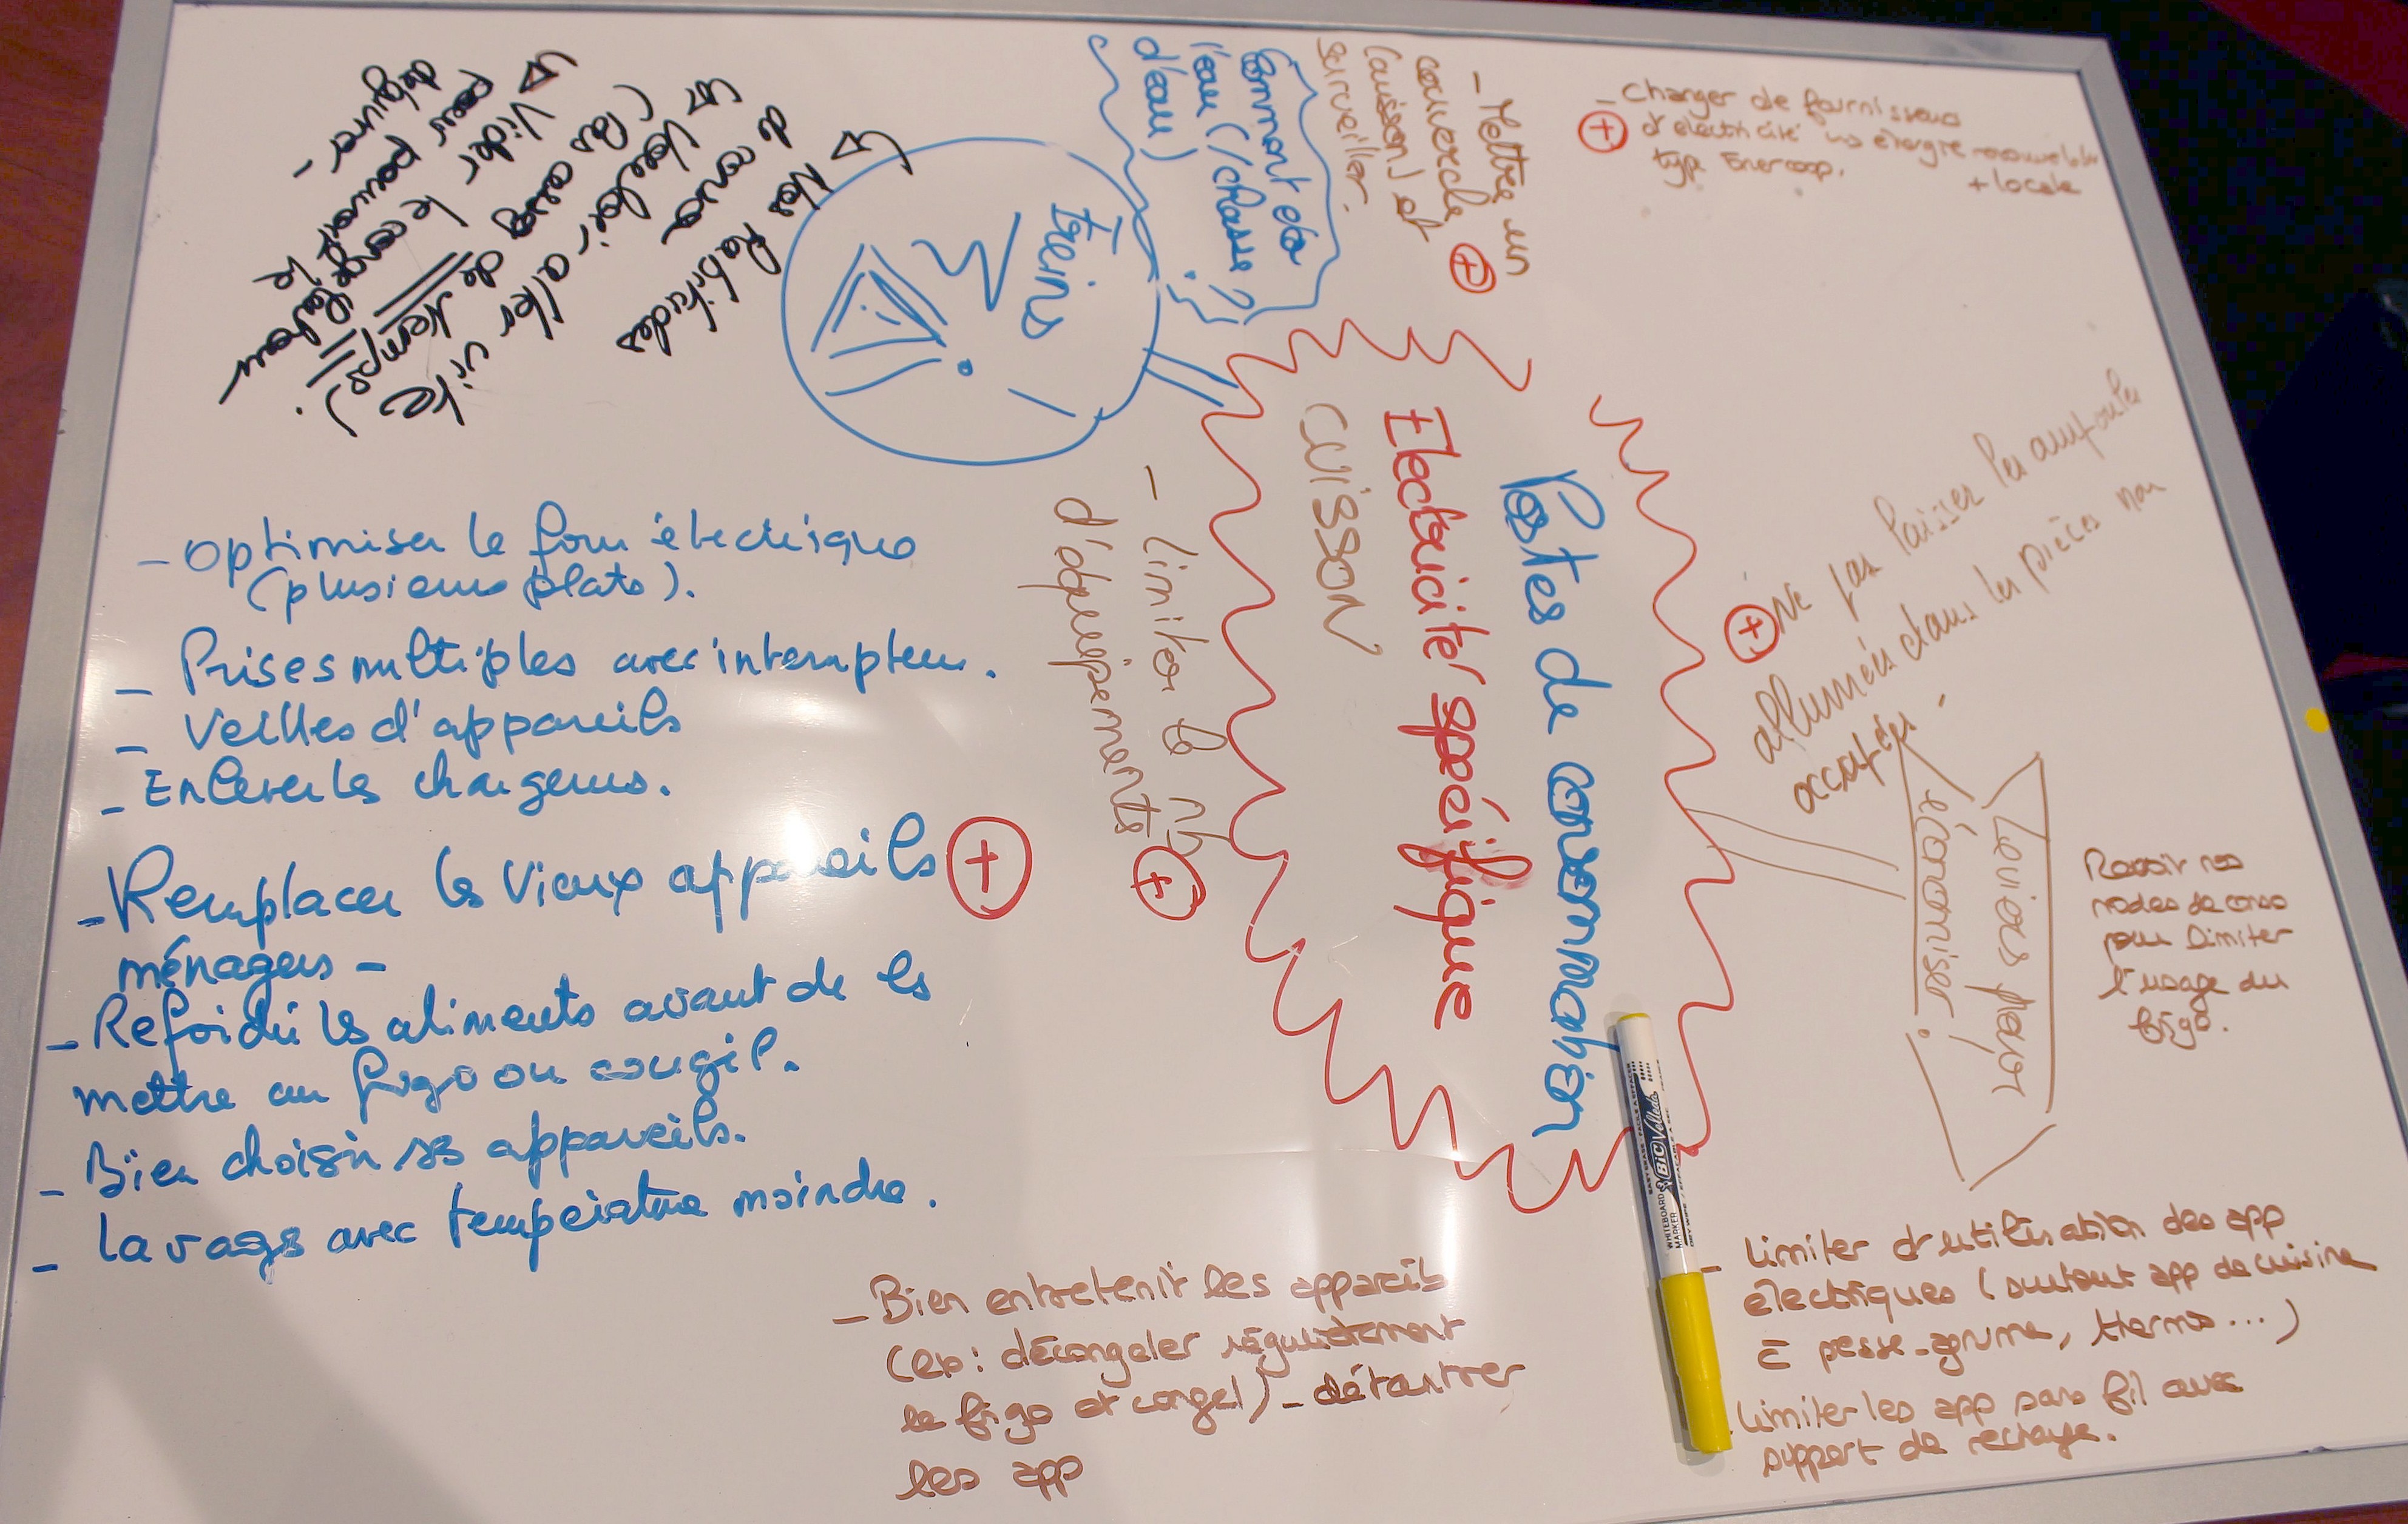 Postes de consommation
Electricité spécifique
CUISSON
Leviers pour
économiser !
Freins
- Changer de fournisseur
d'électricité vs énergie renouvelable
type Enercoop. + locale
+
- Mettre un
couvercle
(cuisson) et
surveiller.
+
Comment éco
l'eau (/chasse
d'eau)
?
Nos habitudes
de conso
Vouloir aller vite
(Pas assez de temps).
Vider le congel
pour pouvoir le
dégivrer -
+
Ne pas laisser les ampoules
allumées dans les pièces non
occupées -
Revoir nos
modes de conso
pour limiter
l'usage du
frigo.
- limiter le nb
d'équipements
+
- Optimiser le four électrique
(plusieurs plats).
- Prises multiples avec interrupteur.
- Veilles d'appareils
- Enlever les chargeurs.
- Remplacer les vieux appareils
ménagers -
+
- Refroidir les aliments avant de les
mettre au frigo ou congél.
- Bien choisir ses appareils.
- lavages avec température moindre.
- Bien entretenir les appareils
(ex : décongeler régulièrement
le frigo et congel) - détartrer
les app
- limiter d'utilisation des app
électriques (surtout app de cuisine
= presse-agrume, thermo...)
- limiter les app sans fil avec
support de recharge.
BIC Velleda
WHITEBOARD
MARKER